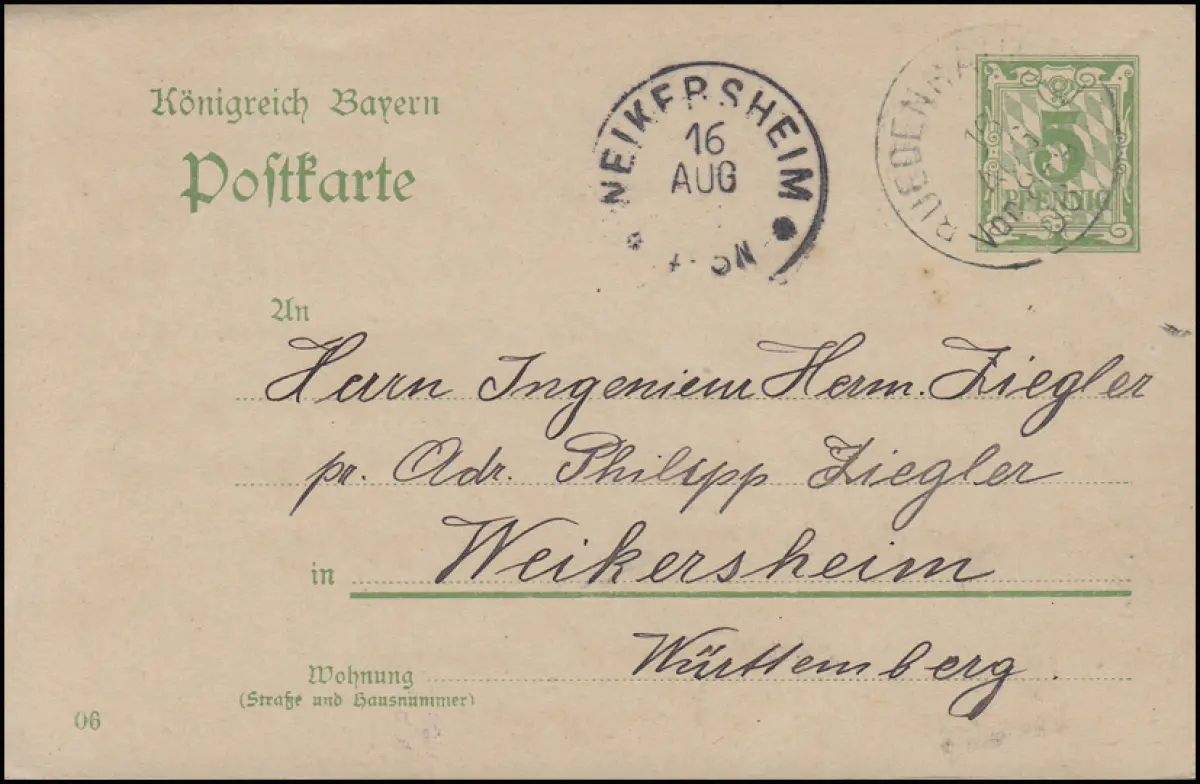 Königreich Bayern
Postkarte
WEIKERSHEIM
16
AUG
RUEDENHAUSEN
Vor
5
PFENNIG
An
Herrn Ingenieur Herm. Ziegler
pr. Adr. Philipp Ziegler
in Weikersheim
Württemberg.
Wohnung
(Straße und Hausnummer)
06